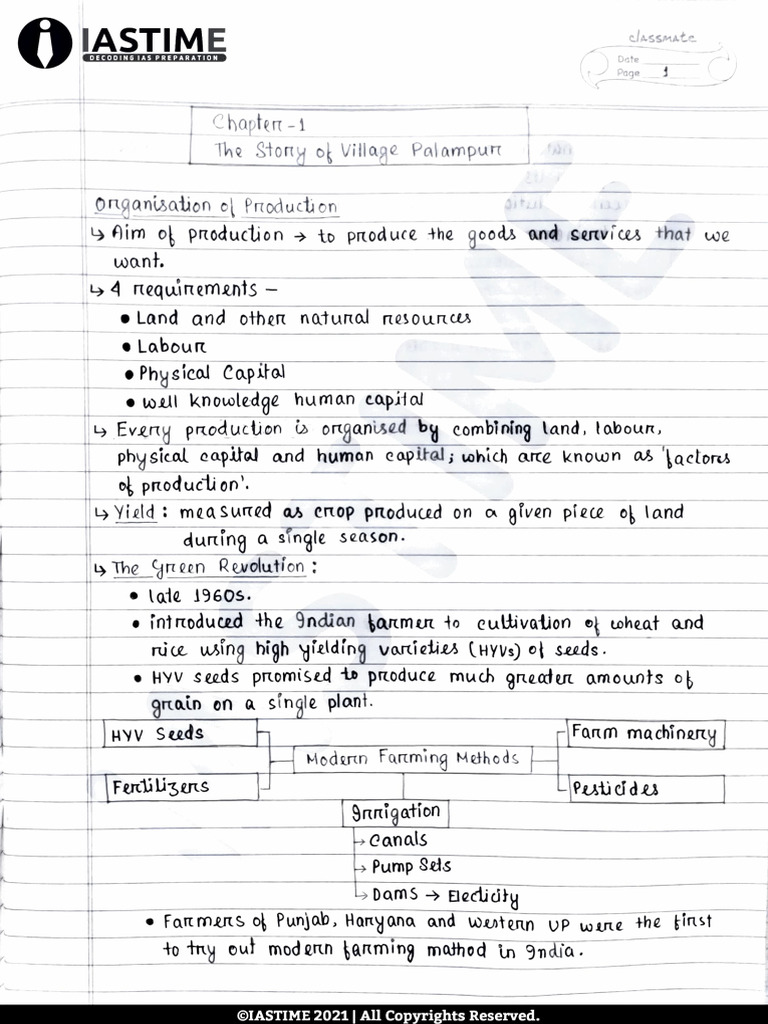 IASTIME
DECODING IAS PREPARATION
classmate
Date
Page 1
Chapter-1
The Story of Village Palampur
Organisation of Production
↳ Aim of production → to produce the goods and services that we
want.
↳ 4 requirements –
• Land and other natural resources
• Labour
• Physical Capital
• well knowledge human capital
↳ Every production is organised by combining land, labour,
physical capital and human capital; which are known as 'factors
of production'.
↳ Yield : measured as crop produced on a given piece of land
during a single season.
↳ The Green Revolution :
• late 1960s.
• introduced the Indian farmer to cultivation of wheat and
rice using high yielding varieties (HYVs) of seeds.
• HYV seeds promised to produce much greater amounts of
grain on a single plant.
HYV Seeds
Farm machinery
Modern Farming Methods
Fertilizers
Pesticides
Irrigation
→ Canals
→ Pump Sets
→ Dams → Electicity
• Farmers of Punjab, Haryana and western UP were the first
to try out modern farming mathod in India.
©IASTIME 2021 | All Copyrights Reserved.